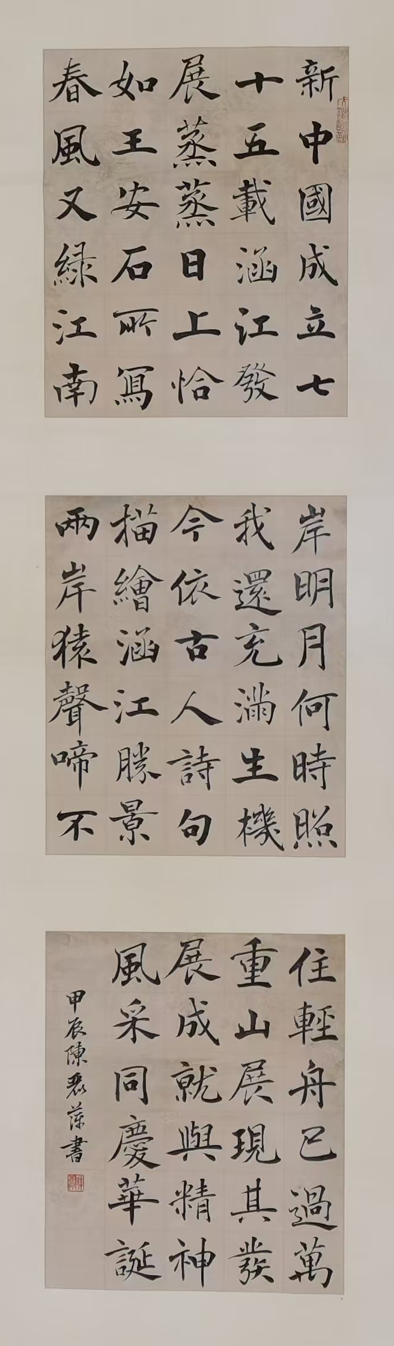 新中國成立七
十五載涵江發
展蒸蒸日上恰
如王安石所寫
春風又綠江南
岸明月何時照
我還充滿生機
今依古人詩句
描繪涵江勝景
兩岸猿聲啼不
住輕舟已過萬
重山展現其發
展成就與精神
風采同慶華誕
甲辰陳書